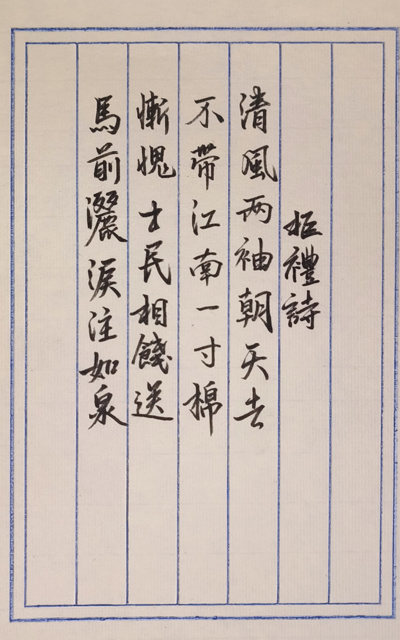 拒禮詩
清風两袖朝天去
不帶江南一寸棉
慚愧士民相餞送
馬前灑淚注如泉